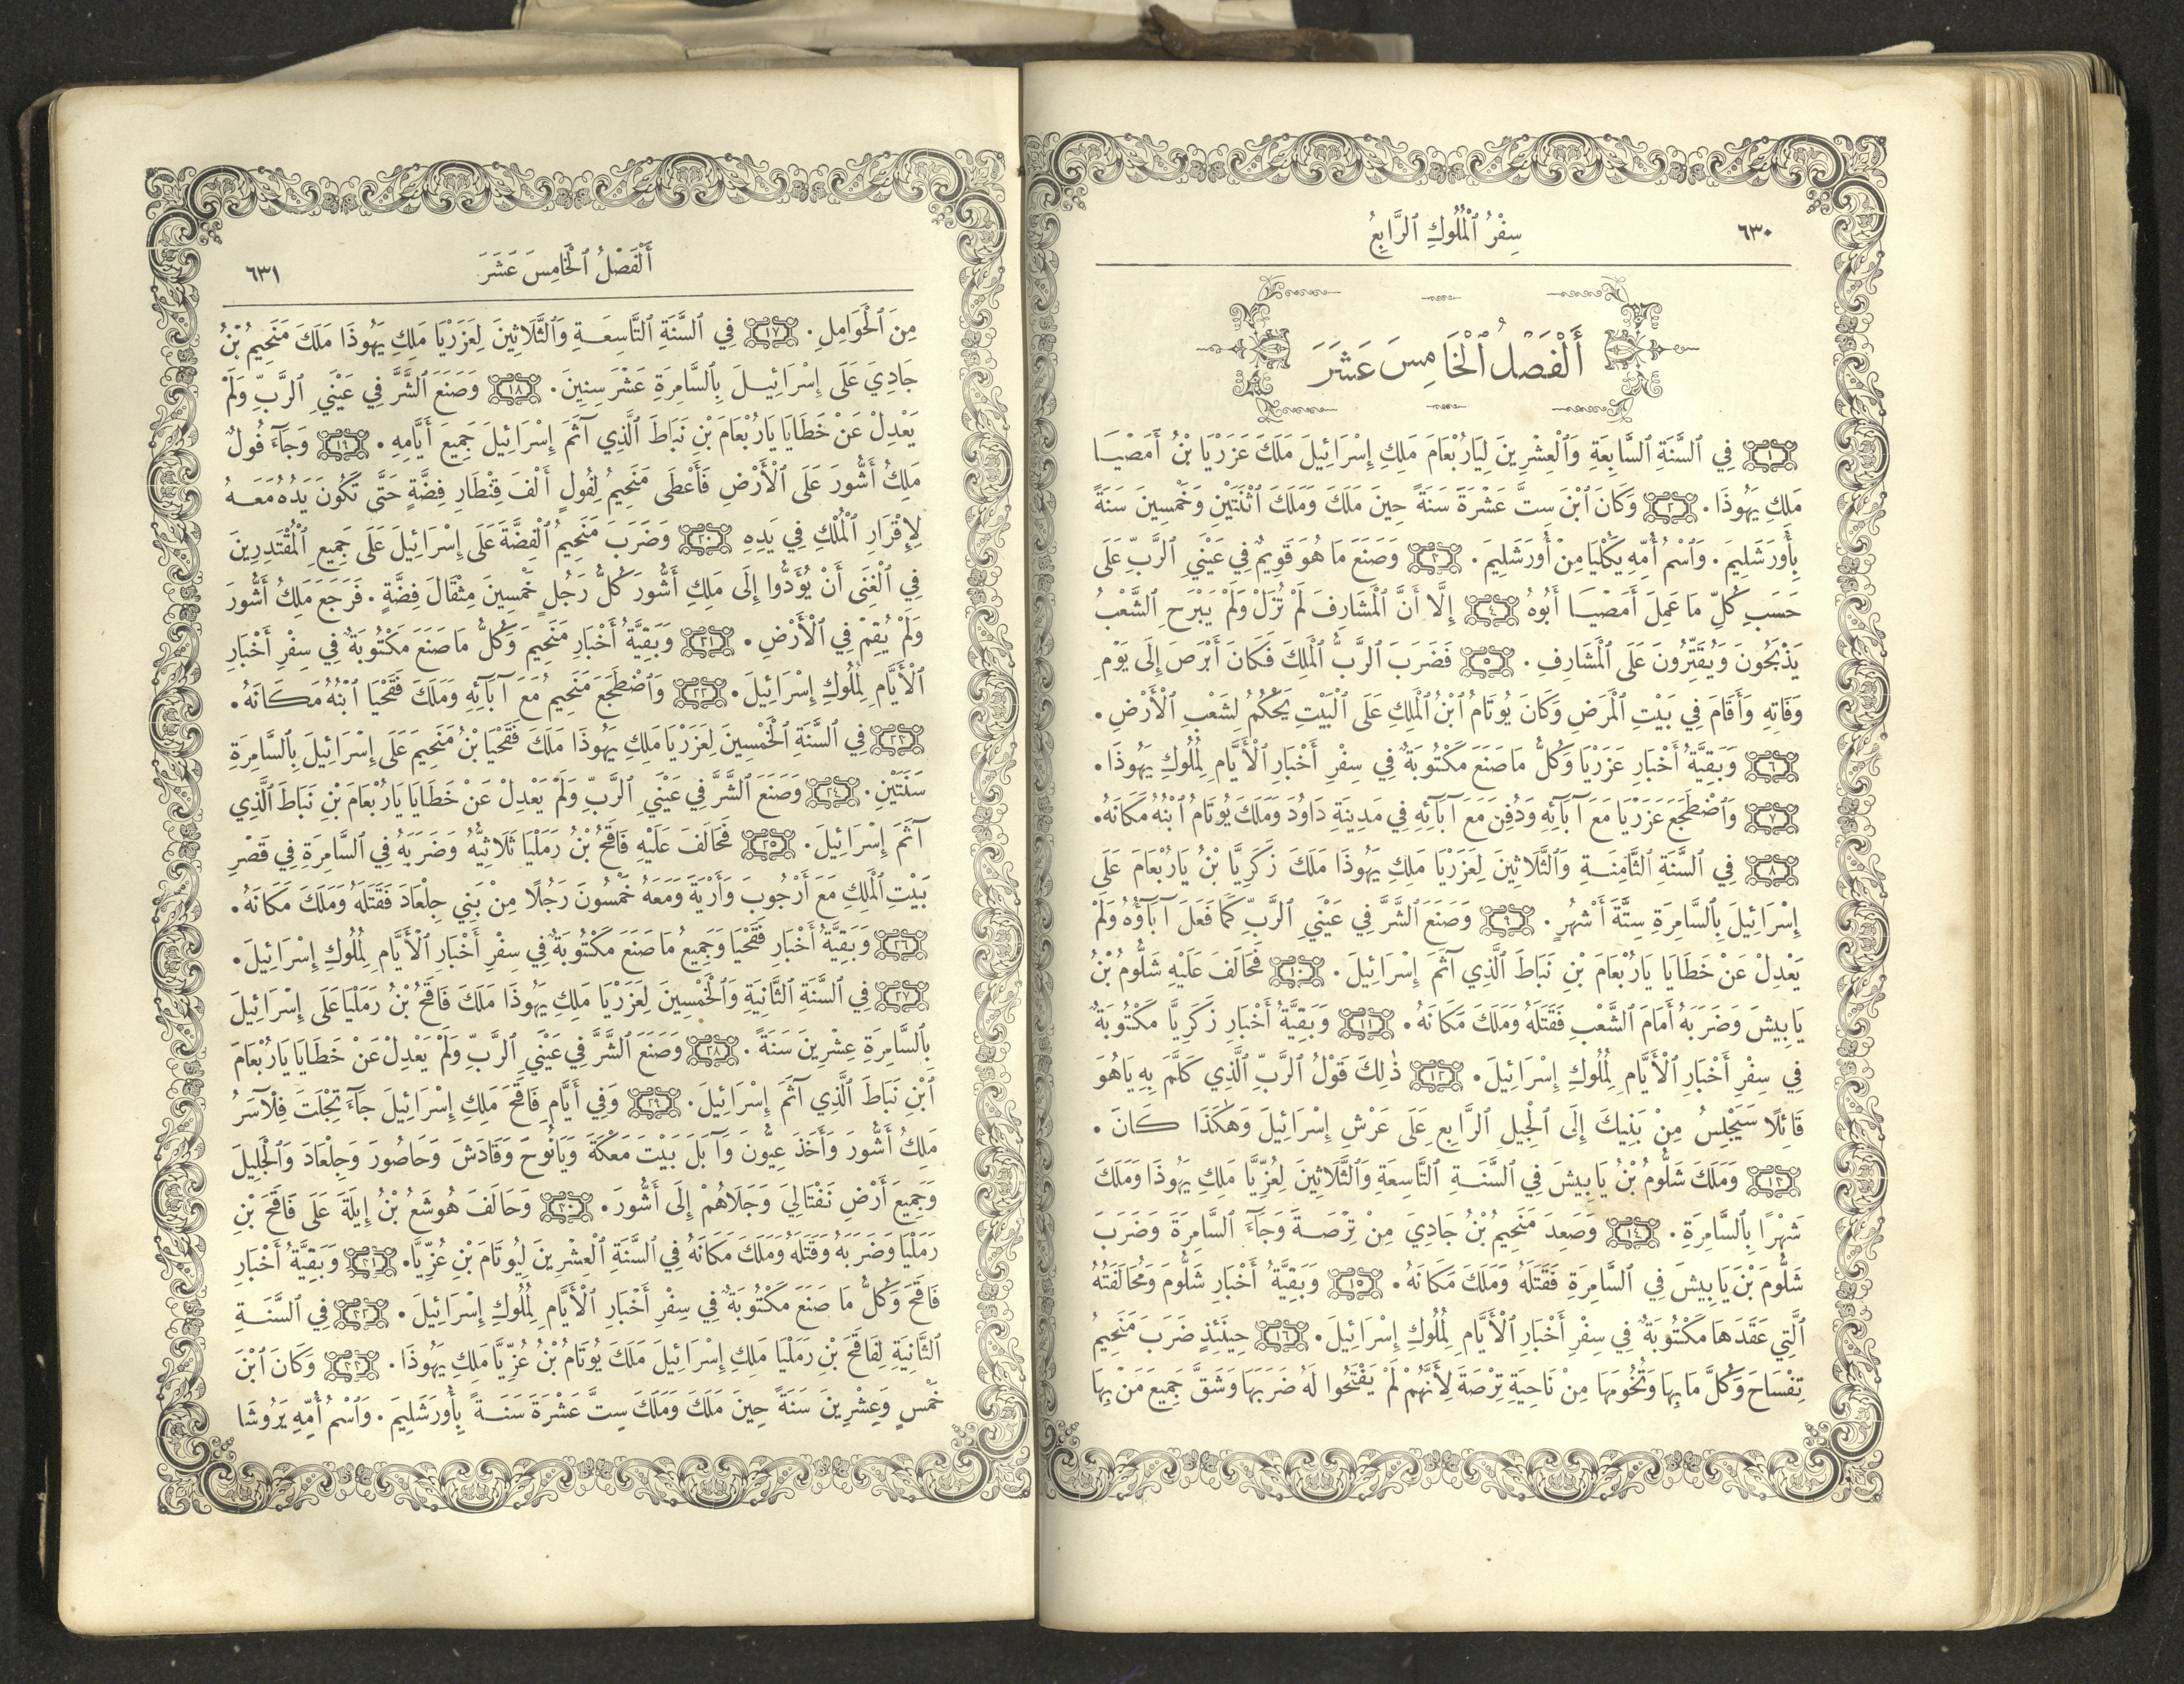 ٦٣٠
سِفْرُ ٱلْمُلُوكِ ٱلرَّابِعُ
أَلْفَصْلُ ٱلْخَامِسَ عَشَرَ
١ فِي ٱلسَّنَةِ ٱلسَّابِعَةِ وَٱلْعِشْرِينَ لِيَارُبْعَامَ مَلِكِ إِسْرَائِيلَ مَلَكَ عَزَرْيَا بْنُ أَمَصْيَا
مَلِكِ يَهُوذَا. ٢ وَكَانَ ٱبْنَ سِتَّ عَشْرَةَ سَنَةً حِينَ مَلَكَ وَمَلَكَ ٱثْنَتَيْنِ وَخَمْسِينَ سَنَةً
بِأُورَشَلِيمَ. وَٱسْمُ أُمِّهِ يَكُلْيَا مِنْ أُورَشَلِيمَ. ٣ وَصَنَعَ مَا هُوَ قَوِيمٌ فِي عَيْنَيِ ٱلرَّبِّ عَلَى
حَسَبِ كُلِّ مَا عَمِلَ أَمَصْيَا أَبُوهُ ٤ إِلَّا أَنَّ ٱلْمَشَارِفَ لَمْ تُزَلْ وَلَمْ يَبْرَحِ ٱلشَّعْبُ
يَذْبَحُونَ وَيُقَتِّرُونَ عَلَى ٱلْمَشَارِفِ. ٥ فَضَرَبَ ٱلرَّبُّ ٱلْمَلِكَ فَكَانَ أَبْرَصَ إِلَى يَوْمِ
وَفَاتِهِ وَأَقَامَ فِي بَيْتِ ٱلْمَرَضِ وَكَانَ يُوتَامُ ٱبْنُ ٱلْمَلِكِ عَلَى ٱلْبَيْتِ يَحْكُمُ لِشَعْبِ ٱلْأَرْضِ.
٦ وَبَقِيَّةُ أَخْبَارِ عَزَرْيَا وَكُلُّ مَا صَنَعَ مَكْتُوبَةٌ فِي سِفْرِ أَخْبَارِ ٱلْأَيَّامِ لِمُلُوكِ يَهُوذَا.
٧ وَٱضْطَجَعَ عَزَرْيَا مَعَ آبَآئِهِ وَدُفِنَ مَعَ آبَآئِهِ فِي مَدِينَةِ دَاوُدَ وَمَلَكَ يُوتَامُ ٱبْنُهُ مَكَانَهُ.
٨ فِي ٱلسَّنَةِ ٱلثَّامِنَةِ وَٱلثَّلَاثِينَ لِعَزَرْيَا مَلِكِ يَهُوذَا مَلَكَ زَكَرِيَّا بْنُ يَارُبْعَامَ عَلَى
إِسْرَائِيلَ بِٱلسَّامِرَةِ سِتَّةَ أَشْهُرٍ. ٩ وَصَنَعَ ٱلشَّرَّ فِي عَيْنَيِ ٱلرَّبِّ كَمَا فَعَلَ آبَآؤُهُ وَلَمْ
يَعْدِلْ عَنْ خَطَايَا يَارُبْعَامَ بْنِ نَبَاطَ ٱلَّذِي آثَمَ إِسْرَائِيلَ. ١٠ فَحَالَفَ عَلَيْهِ شَلُّومُ بْنُ
يَابِيشَ وَضَرَبَهُ أَمَامَ ٱلشَّعْبِ فَقَتَلَهُ وَمَلَكَ مَكَانَهُ. ١١ وَبَقِيَّةُ أَخْبَارِ زَكَرِيَّا مَكْتُوبَةٌ
فِي سِفْرِ أَخْبَارِ ٱلْأَيَّامِ لِمُلُوكِ إِسْرَائِيلَ. ١٢ ذٰلِكَ قَوْلُ ٱلرَّبِّ ٱلَّذِي كَلَّمَ بِهِ يَاهُوَ
قَائِلًا سَيَجْلِسُ مِنْ بَنِيكَ إِلَى ٱلْجِيلِ ٱلرَّابِعِ عَلَى عَرْشِ إِسْرَائِيلَ وَهٰكَذَا كَانَ.
١٣ وَمَلَكَ شَلُّومُ بْنُ يَابِيشَ فِي ٱلسَّنَةِ ٱلتَّاسِعَةِ وَٱلثَّلَاثِينَ لِعُزِّيَّا مَلِكِ يَهُوذَا وَمَلَكَ
شَهْرًا بِٱلسَّامِرَةِ. ١٤ وَصَعِدَ مَنَحِيمُ بْنُ جَادِيَ مِنْ تِرْصَةَ وَجَآءَ ٱلسَّامِرَةَ وَضَرَبَ
شَلُّومَ بْنَ يَابِيشَ فِي ٱلسَّامِرَةِ فَقَتَلَهُ وَمَلَكَ مَكَانَهُ. ١٥ وَبَقِيَّةُ أَخْبَارِ شَلُّومَ وَمُحَالَفَتُهُ
ٱلَّتِي عَقَدَهَا مَكْتُوبَةٌ فِي سِفْرِ أَخْبَارِ ٱلْأَيَّامِ لِمُلُوكِ إِسْرَائِيلَ. ١٦ حِينَئِذٍ ضَرَبَ مَنَحِيمُ
تِفْسَاحَ وَكُلَّ مَا بِهَا وَتُخُومَهَا مِنْ نَاحِيَةِ تِرْصَةَ لِأَنَّهُمْ لَمْ يَفْتَحُوا لَهُ ضَرَبَهَا وَشَقَّ جَمِيعَ مَنْ بِهَا
أَلْفَصْلُ ٱلْخَامِسَ عَشَرَ
٦٣١
مِنَ ٱلْحَوَامِلِ. ١٧ فِي ٱلسَّنَةِ ٱلتَّاسِعَةِ وَٱلثَّلَاثِينَ لِعَزَرْيَا مَلِكِ يَهُوذَا مَلَكَ مَنَحِيمُ بْنُ
جَادِي عَلَى إِسْرَائِيلَ بِٱلسَّامِرَةِ عَشْرَ سِنِينَ. ١٨ وَصَنَعَ ٱلشَّرَّ فِي عَيْنَيِ ٱلرَّبِّ وَلَمْ
يَعْدِلْ عَنْ خَطَايَا يَارُبْعَامَ بْنِ نَبَاطَ ٱلَّذِي آثَمَ إِسْرَائِيلَ جَمِيعَ أَيَّامِهِ. ١٩ وَجَآءَ فُولٌ
مَلِكُ أَشُّورَ عَلَى ٱلْأَرْضِ فَأَعْطَى مَنَحِيمُ لِفُولٍ أَلْفَ قِنْطَارِ فِضَّةٍ حَتَّى تَكُونَ يَدُهُ مَعَهُ
لِإِقْرَارِ ٱلْمُلْكِ فِي يَدِهِ ٢٠ وَضَرَبَ مَنَحِيمُ ٱلْفِضَّةَ عَلَى إِسْرَائِيلَ عَلَى جَمِيعِ ٱلْمُقْتَدِرِينَ
فِي ٱلْغِنَى أَنْ يُؤَدُّوا إِلَى مَلِكِ أَشُّورَ كُلُّ رَجُلٍ خَمْسِينَ مِثْقَالَ فِضَّةٍ. فَرَجَعَ مَلِكُ أَشُّورَ
وَلَمْ يُقِمْ فِي ٱلْأَرْضِ. ٢١ وَبَقِيَّةُ أَخْبَارِ مَنَحِيمَ وَكُلُّ مَا صَنَعَ مَكْتُوبَةٌ فِي سِفْرِ أَخْبَارِ
ٱلْأَيَّامِ لِمُلُوكِ إِسْرَائِيلَ. ٢٢ وَٱضْطَجَعَ مَنَحِيمُ مَعَ آبَآئِهِ وَمَلَكَ فَقَحْيَا ٱبْنُهُ مَكَانَهُ.
٢٣ فِي ٱلسَّنَةِ ٱلْخَمْسِينَ لِعَزَرْيَا مَلِكِ يَهُوذَا مَلَكَ فَقَحْيَا بْنُ مَنَحِيمَ عَلَى إِسْرَائِيلَ بِٱلسَّامِرَةِ
سَنَتَيْنِ. ٢٤ وَصَنَعَ ٱلشَّرَّ فِي عَيْنَيِ ٱلرَّبِّ وَلَمْ يَعْدِلْ عَنْ خَطَايَا يَارُبْعَامَ بْنِ نَبَاطَ ٱلَّذِي
آثَمَ إِسْرَائِيلَ. ٢٥ فَحَالَفَ عَلَيْهِ فَاقَحُ بْنُ رَمَلْيَا ثَلَاثِيُّهُ وَضَرَبَهُ فِي ٱلسَّامِرَةِ فِي قَصْرِ
بَيْتِ ٱلْمَلِكِ مَعَ أَرْجُوبَ وَأَرْيَةَ وَمَعَهُ خَمْسُونَ رَجُلًا مِنْ بَنِي جِلْعَادَ فَقَتَلَهُ وَمَلَكَ مَكَانَهُ.
٢٦ وَبَقِيَّةُ أَخْبَارِ فَقَحْيَا وَجَمِيعُ مَا صَنَعَ مَكْتُوبَةٌ فِي سِفْرِ أَخْبَارِ ٱلْأَيَّامِ لِمُلُوكِ إِسْرَائِيلَ.
٢٧ فِي ٱلسَّنَةِ ٱلثَّانِيَةِ وَٱلْخَمْسِينَ لِعَزَرْيَا مَلِكِ يَهُوذَا مَلَكَ فَاقَحُ بْنُ رَمَلْيَا عَلَى إِسْرَائِيلَ
بِٱلسَّامِرَةِ عِشْرِينَ سَنَةً. ٢٨ وَصَنَعَ ٱلشَّرَّ فِي عَيْنَيِ ٱلرَّبِّ وَلَمْ يَعْدِلْ عَنْ خَطَايَا يَارُبْعَامَ
ٱبْنِ نَبَاطَ ٱلَّذِي آثَمَ إِسْرَائِيلَ. ٢٩ وَفِي أَيَّامِ فَاقَحَ مَلِكِ إِسْرَائِيلَ جَآءَ تِجْلَتَ فِلْآسَرُ
مَلِكُ أَشُّورَ وَأَخَذَ عِيُّونَ وَآبَلَ بَيْتَ مَعْكَةَ وَيَانُوحَ وَقَادَشَ وَحَاصُورَ وَجِلْعَادَ وَٱلْجَلِيلَ
وَجَمِيعَ أَرْضِ نَفْتَالِيَ وَجَلَاهُمْ إِلَى أَشُّورَ. ٣٠ وَحَالَفَ هُوشَعُ بْنُ إِيلَةَ عَلَى فَاقَحَ بْنِ
رَمَلْيَا وَضَرَبَهُ وَقَتَلَهُ وَمَلَكَ مَكَانَهُ فِي ٱلسَّنَةِ ٱلْعِشْرِينَ لِيُوتَامَ بْنِ عُزِّيَّا. ٣١ وَبَقِيَّةُ أَخْبَارِ
فَاقَحَ وَكُلُّ مَا صَنَعَ مَكْتُوبَةٌ فِي سِفْرِ أَخْبَارِ ٱلْأَيَّامِ لِمُلُوكِ إِسْرَائِيلَ. ٣٢ فِي ٱلسَّنَةِ
ٱلثَّانِيَةِ لِفَاقَحَ بْنِ رَمَلْيَا مَلِكِ إِسْرَائِيلَ مَلَكَ يُوتَامُ بْنُ عُزِّيَّا مَلِكِ يَهُوذَا. ٣٣ وَكَانَ ٱبْنَ
خَمْسٍ وَعِشْرِينَ سَنَةً حِينَ مَلَكَ وَمَلَكَ سِتَّ عَشْرَةَ سَنَةً بِأُورَشَلِيمَ. وَٱسْمُ أُمِّهِ يَرُوشَا